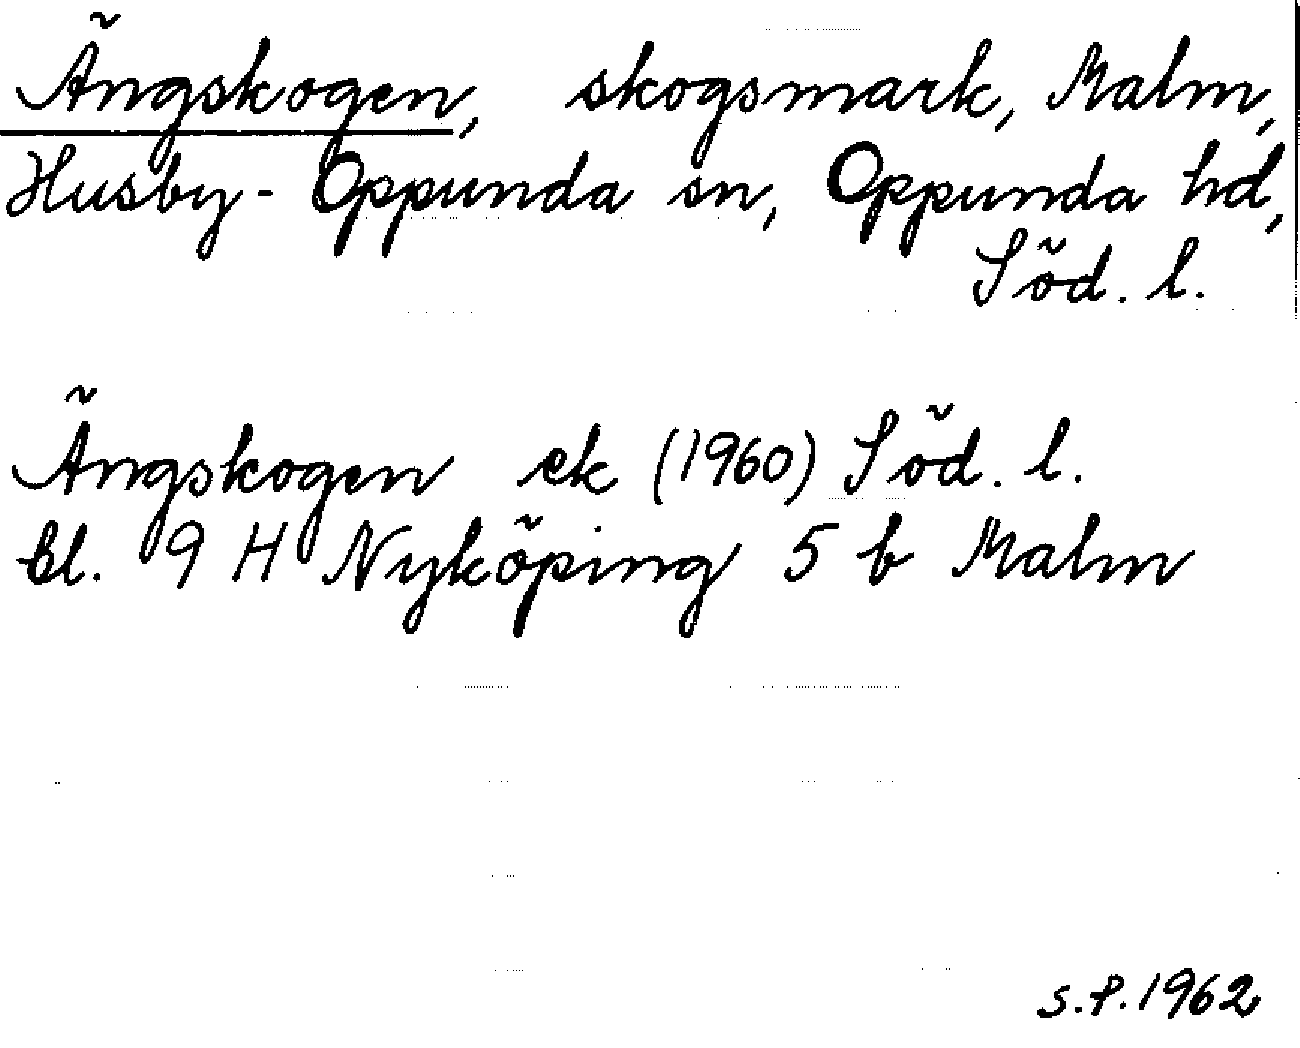 Ängskogen, skogsmark, Malm,
Husby-Oppunda sn, Oppunda hd,
Söd. l.
Ängskogen ek (1960) Söd. l.
bl. 9 H Nyköping 5 b Malm
S.P. 1962